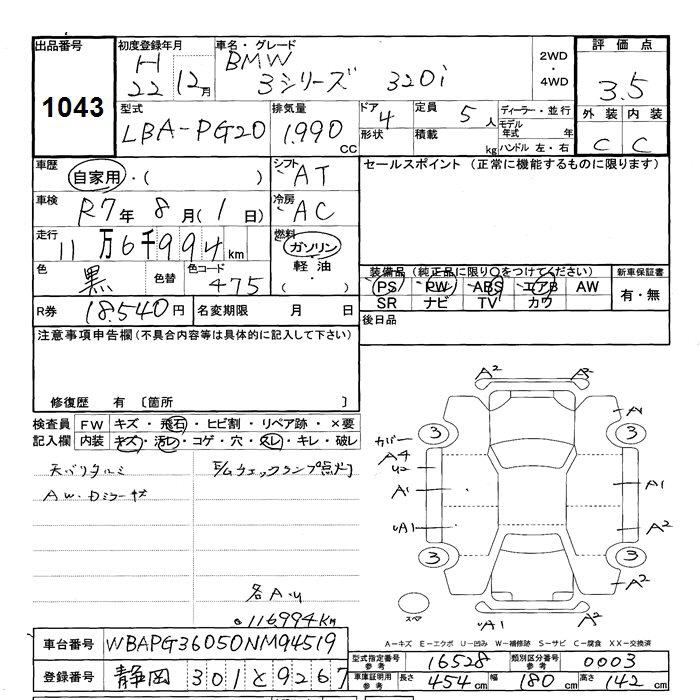 出品番号 初度登録年月 車名・グレード 評価点
1043 H 22 12月 BMW 3シリーズ 320i 2WD・4WD 3.5
型式 排気量 ドア 定員 ディーラー・並行 外装 内装
LBA-PG20 1,990 CC 4 5人 モデル年式 年 C C
形状 積載 kg ハンドル 左・右
車歴 自家用・( ) シフト AT セールスポイント (正常に機能するものに限ります)
車検 R7年 8月(1日) 冷房 AC
走行 11万6千994km 燃料 ガソリン・軽油・( )
色 黒 色替 色コード 475 装備品 (純正品に限り○をつけてください) 新車保証書
PS PW ABS エアB AW 有・無
SR ナビ TV カワ
R券 18,540円 名変期限 月 日 後日品
注意事項申告欄(不具合内容等は具体的に記入して下さい)
修復歴 有 〔箇所 〕
検査員 FW キズ・飛石・ヒビ割・リペア跡・×要
記入欄 内装 キズ・汚レ・コゲ・穴・スレ・キレ・破レ
天バリタルミ E/Gチェックランプ点灯
AW・Dミラーキズ
各A・U
116,994km
A2 A2
A
3 3
カバー
A4
U2
A1 A1
UA1 A2
3 3
A2
スペア UA1 A2
A-キズ E-エクボ U-凹み W-補修跡 S-サビ C-腐食 XX-交換済
車台番号 WBAPG36050NM94519
登録番号 静岡 301 と 9267
型式指定番号 参考 16528 類別区分番号 参考 0003
車庫証明用 参考 長さ 454cm 幅 180cm 高さ 142cm